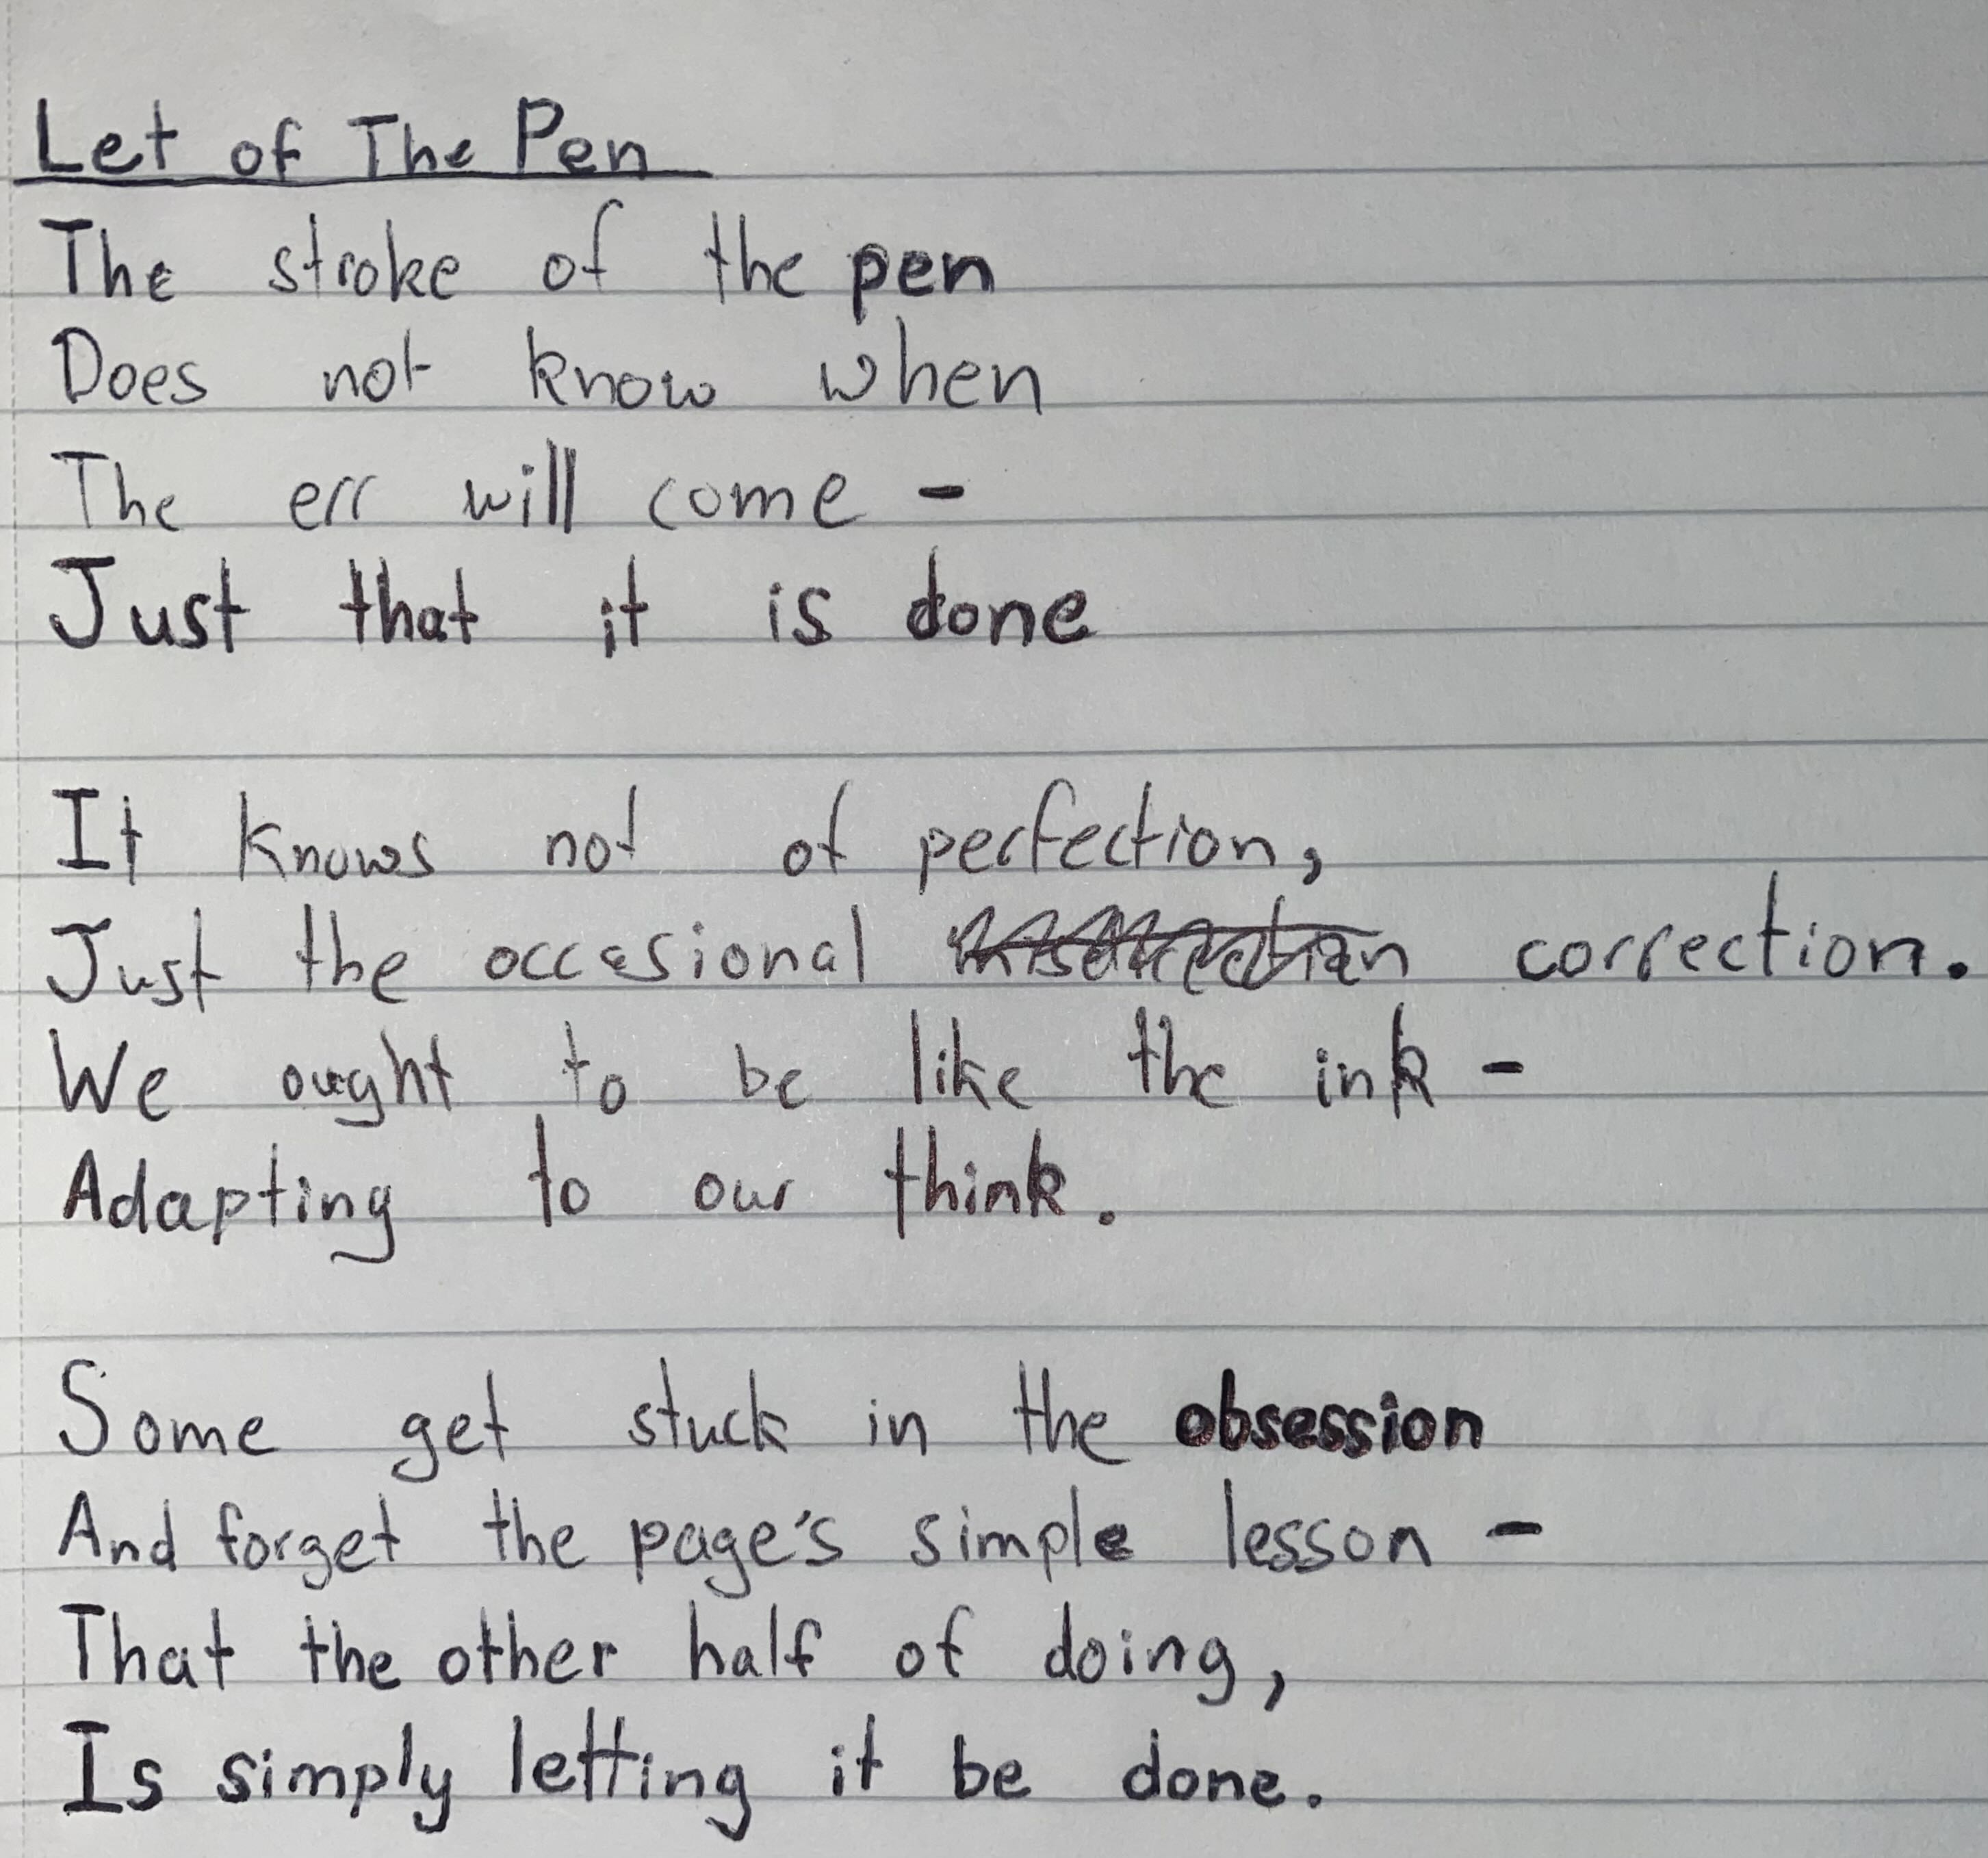 Let of The Pen
The stroke of the pen
Does not know when
The err will come -
Just that it is done
It knows not of perfection,
Just the occasional correction.
We ought to be like the ink -
Adapting to our think.
Some get stuck in the obsession
And forget the page's simple lesson -
That the other half of doing,
Is simply letting it be done.